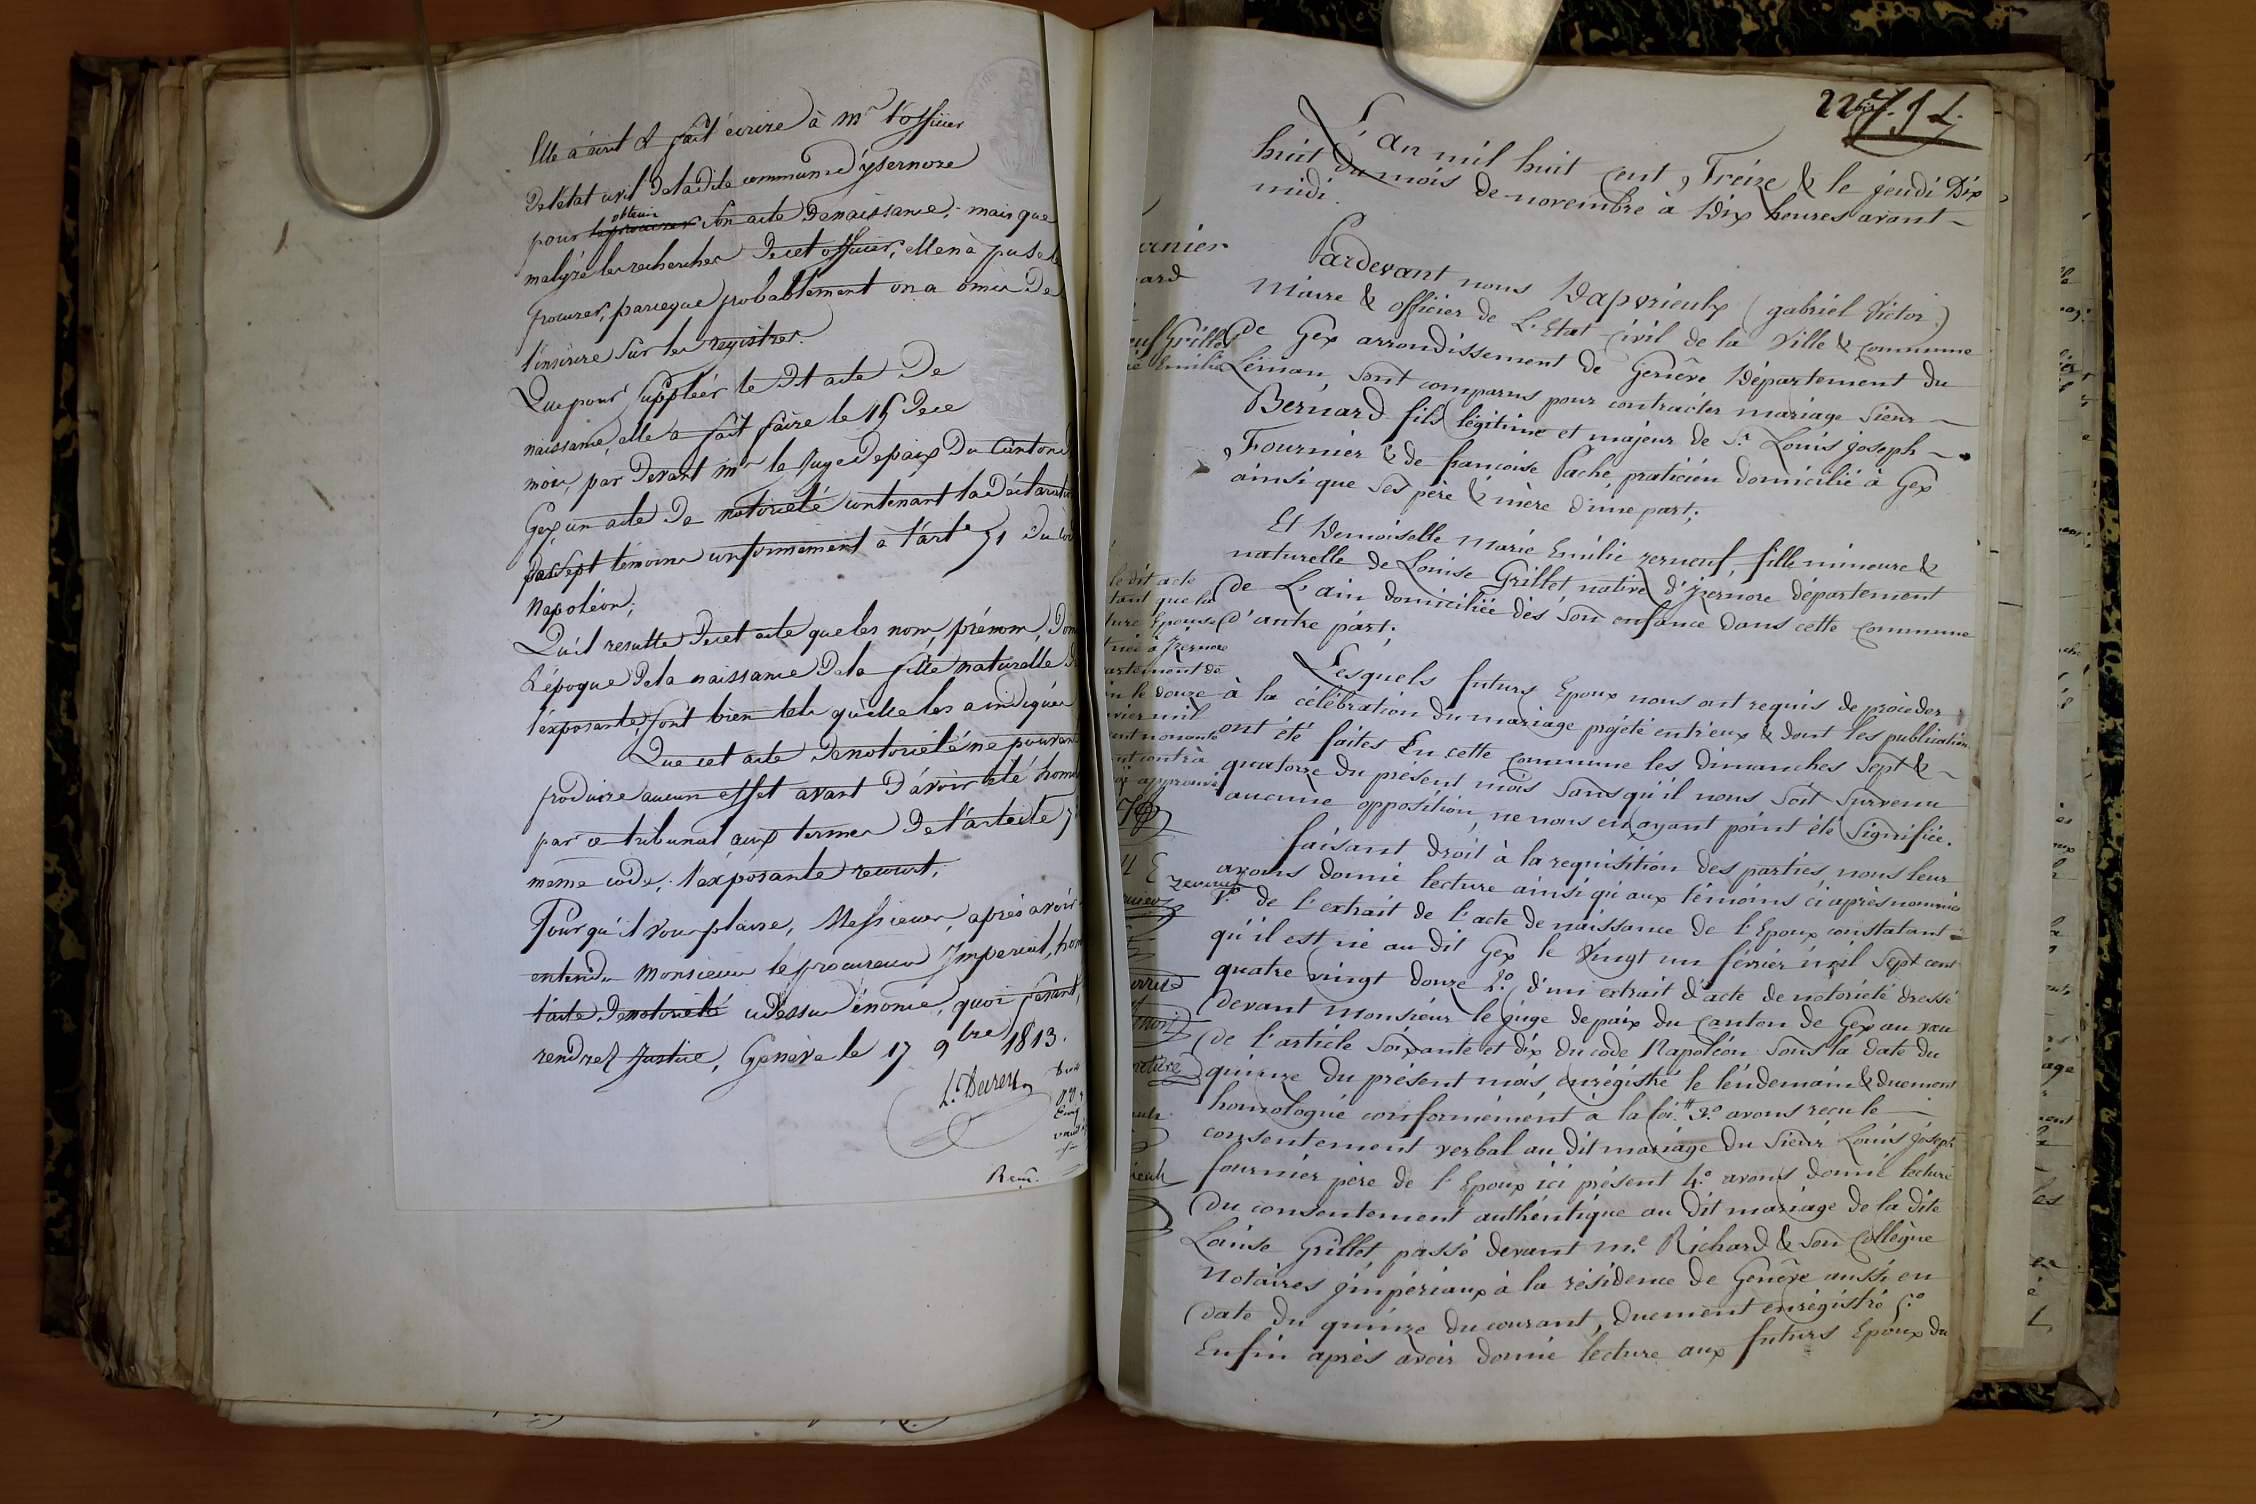 Elle a écrit & fait écrire à Mr l'officier
De l'état civil De la dite commune d'ysernore
obtenir
pour son acte De naissance; mais que
malgré les recherches De cet officier, elle n'a pu se le
procurer, parceque probablement on a omis De
l'inscrire sur les registres.
Que pour suppléer le Dt acte De
naissance, elle a fait faire le 15 De ce
mois, par Devant Mr le Juge De paix Du Canton
Gex un acte De notoriété contenant la Déclaration
par sept témoins conformément à l'art 71 Du
Napoléon;
Qu'il resulte De cet acte que les nom, prénom,
l'époque De la naissance De la fille naturelle
l'exposante, sont bien tels qu'elle les a indiqués
Que cet acte De notoriété ne pouvant
produire aucun effet avant D'avoir été
par ce tribunal aux termes De l'article
même code, l'exposante recourt,
Pour qu'il vous plaise, Messieurs, après avoir
entendu Monsieur le procureur Imperial,
l'acte De notoriété cidessus énoncé, quoi fesant,
rendrez Justice, Genève le 17 9bre 1813.
22 bis
L'an mil huit cent Treize & le jeudi Dix
huit du mois de novembre à Dix heures avant-
midi.
Pardevant nous Dapvrieulx (gabriel Victor)
Maire & officier de L'Etat Civil de la Ville & commune
de Gex arrondissement de Genève Département du
Léman, sont comparus pour contracter mariage sieur
Bernard fils légitime et majeur de Sr Louis joseph
Fournier & de françoise Pache praticien domicilié à Gex
ainsi que ses père & mère d'une part;
Et Demoiselle Marie Emilie zerneuf, fille mineure &
naturelle de Louise Grillet native d'jzernore département
de L'ain domiciliée dès son enfance dans cette commune
d'autre part.
Lesquels futurs Epoux nous ont requis de procéder
à la célébration du mariage projeté entr'eux & dont les publications
ont été faites En cette commune les dimanches sept &
quatorze du présent mois sans qu'il nous soit survenu
aucune opposition, ne nous en ayant point été signifiée.
faisant droit à la requisition des parties nous leur
avons donné lecture ainsi qu'aux témoins ci après nommés
1º de l'extrait de l'acte de naissance de l'Epoux constatant
qu'il est né au dit Gex le vingt un février mil sept cent
quatre vingt douze 2º d'un extrait d'acte de notoriété dressé
devant Monsieur le juge de paix du Canton de Gex au vœu
de l'article soixante et dix du code Napoléon sous la date du
quinze du présent mois enrégistré le lendemain & duement
homologué conformément à la loi. # 3º avons reçu le
consentement verbal au dit mariage du sieur Louis joseph
fournier père de l'Epoux ici présent 4º avons donné lecture
du consentement authentique au dit mariage de la dite
Louise Grillet passé devant Me Richard & son Collègue
Notaires jmpériaux à la résidence de Genève aussi en
date du quinze du courant, duement enrégistré 5º
Enfin après avoir donné lecture aux futurs Epoux du